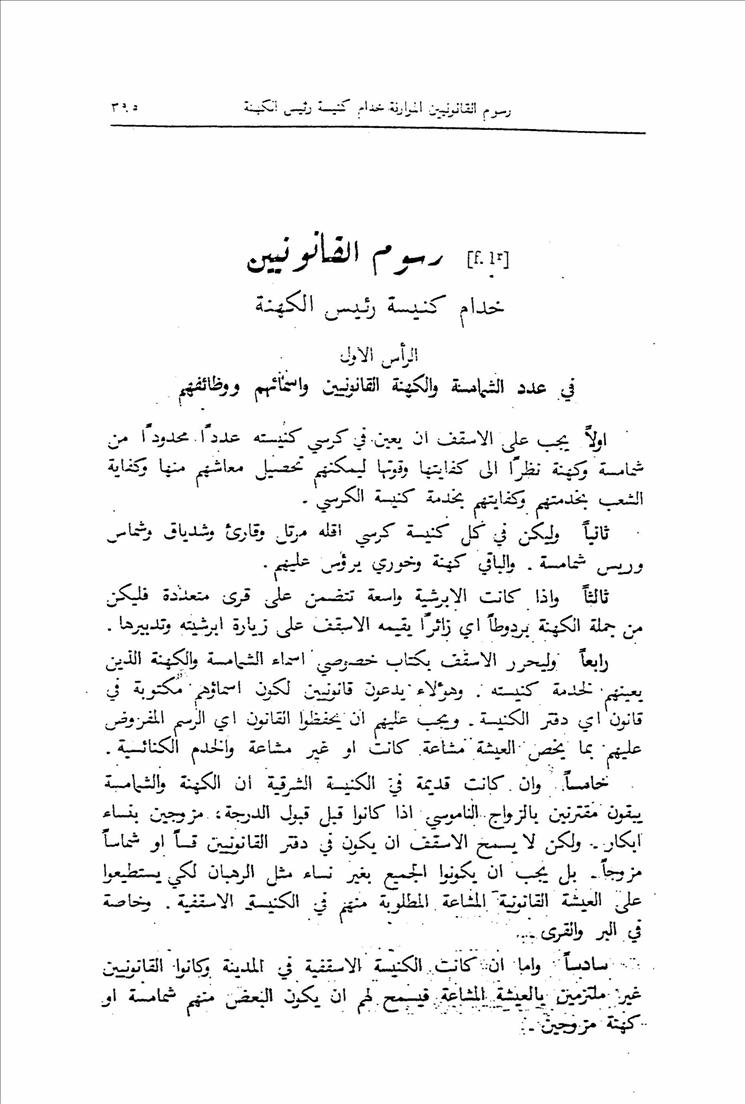 رسوم القانونيين الموارنة خدام كنيسة رئيس الكهنة ٣٩٥
[f. 1r] رسوم القانونيين
خدام كنيسة رئيس الكهنة
الرأس الاول
في عدد الشمامسة والكهنة القانونيين واسمائهم ووظائفهم
اولاً يجب على الاسقف ان يعين في كرسي كنيسته عدداً محدوداً من
شمامسة وكهنة نظرًا الى كفايتها وقوتها ليمكنهم تحصيل معاشهم منها وكفاية
الشعب بخدمتهم وكفايتهم بخدمة كنيسة الكرسي .
ثانياً وليكن في كل كنيسة كرسي اقله مرتل وقارئ وشدياق وشماس
وريس شمامسة . والباقي كهنة وخوري يرؤس عليهم .
ثالثاً واذا كانت الابرشية واسعة تتضمن على قرى متعددة فليكن
من جملة الكهنة بردوطاً اي زائرًا يقيمه الاسقف على زيارة ابرشيته وتدبيرها .
رابعاً وليحرر الاسقف بكتاب خصوصي اسماء الشمامسة والكهنة الذين
يعينهم لخدمة كنيسته . وهؤلاء يدعون قانونيين لكون اسماؤهم مكتوبة في
قانون اي دفتر الكنيسة . ويجب عليهم ان يحفظوا القانون اي الرسم المفروض
عليهم بما يخص العيشة مشاعة كانت او غير مشاعة والخدم الكنائسية .
خامساً وان كانت قديمة في الكنيسة الشرقية ان الكهنة والشمامسة
يبقون مقترنين بالزواج الناموسي اذا كانوا قبل قبول الدرجة ، مزوجين بنساء
ابكار . ولكن لا يسمح الاسقف ان يكون في دفتر القانونيين قساً او شماساً
مزوجاً . بل يجب ان يكونوا الجميع بغير نساء مثل الرهبان لكي يستطيعوا
على العيشة القانونية المشاعة المطلوبة منهم في الكنيسة الاسقفية . وخاصة
في البر والقرى .
سادساً واما ان كانت الكنيسة الاسقفية في المدينة وكانوا القانونيين
غير ملتزمين بالعيشة المشاعة فيسمح لهم ان يكون البعض منهم شمامسة او
كهنة مزوجين .